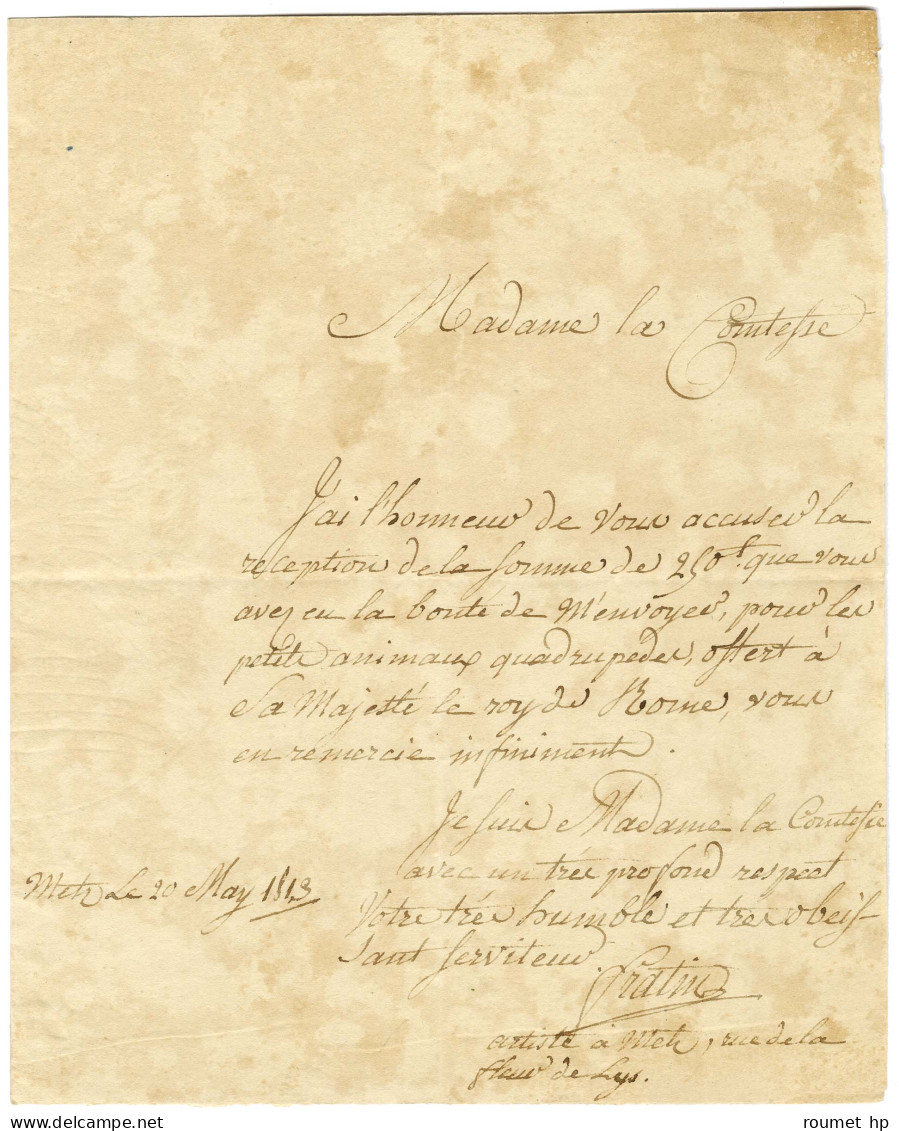 Madame la Comtesse
J'ai l'honneur de vous accuser la
réception de la somme de 250 f. que vous
avez eu la bonté de M'envoyer, pour les
petits animaux quadrupedes, offert à
Sa Majesté le roy de Rome, vous
en remercie infiniment.
Je suis Madame la Comtesse
avec un très profond respect
Metz Le 20 May 1813
Votre très humble et très obeis-
sant serviteur
Fratin
artiste à Metz, rue de la
fleur de Lys.
roumet hp
DELCAMPE.NET